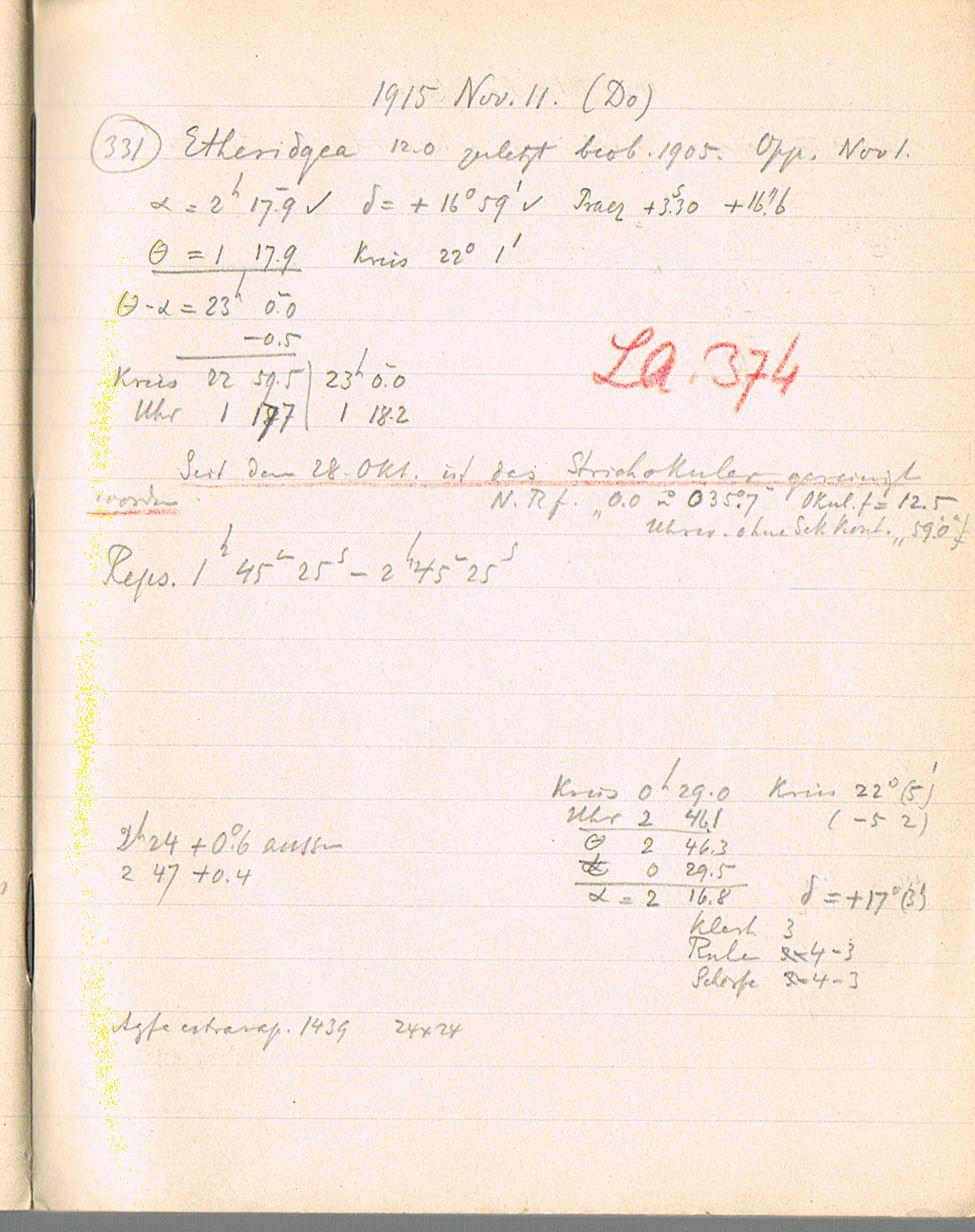 1915 Nov. 11. (Do)
331 Etheridgea 12.0 zuletzt beob. 1905. Opp. Nov 1.
α = 2h 17.9m ✓ δ = + 16° 59' ✓ Praez +3.30s +16".6
Θ = 1 17.9 Kreis 22° 1'
Θ-α = 23h 0.0m
-0.5
Kreis 22 59.5 | 23h 0.0m
Uhr 1 17.7 | 1 18.2
La. 374
Seit dem 28. Okt. ist das Strichokular gereinigt
worden
N. Rf. „0.0 = 035.7" Okul. f = 12.5
Uhrw. ohne Sek Kont. „59.0"
Reps. 1h 45m 25s – 2h 45m 25s
Kreis 0h 29.0 Kreis 22° (5')
Uhr 2 46.1 (-5 2)
2h 24 + 0.6 aussen
Θ 2 46.3
2 47 +0.4
0 29.5
α = 2 16.8 δ = +17° (3')
Klarh 3
Ruhe 4-3
Schärfe 4-3
Agfa extrarap. 1439 24x24